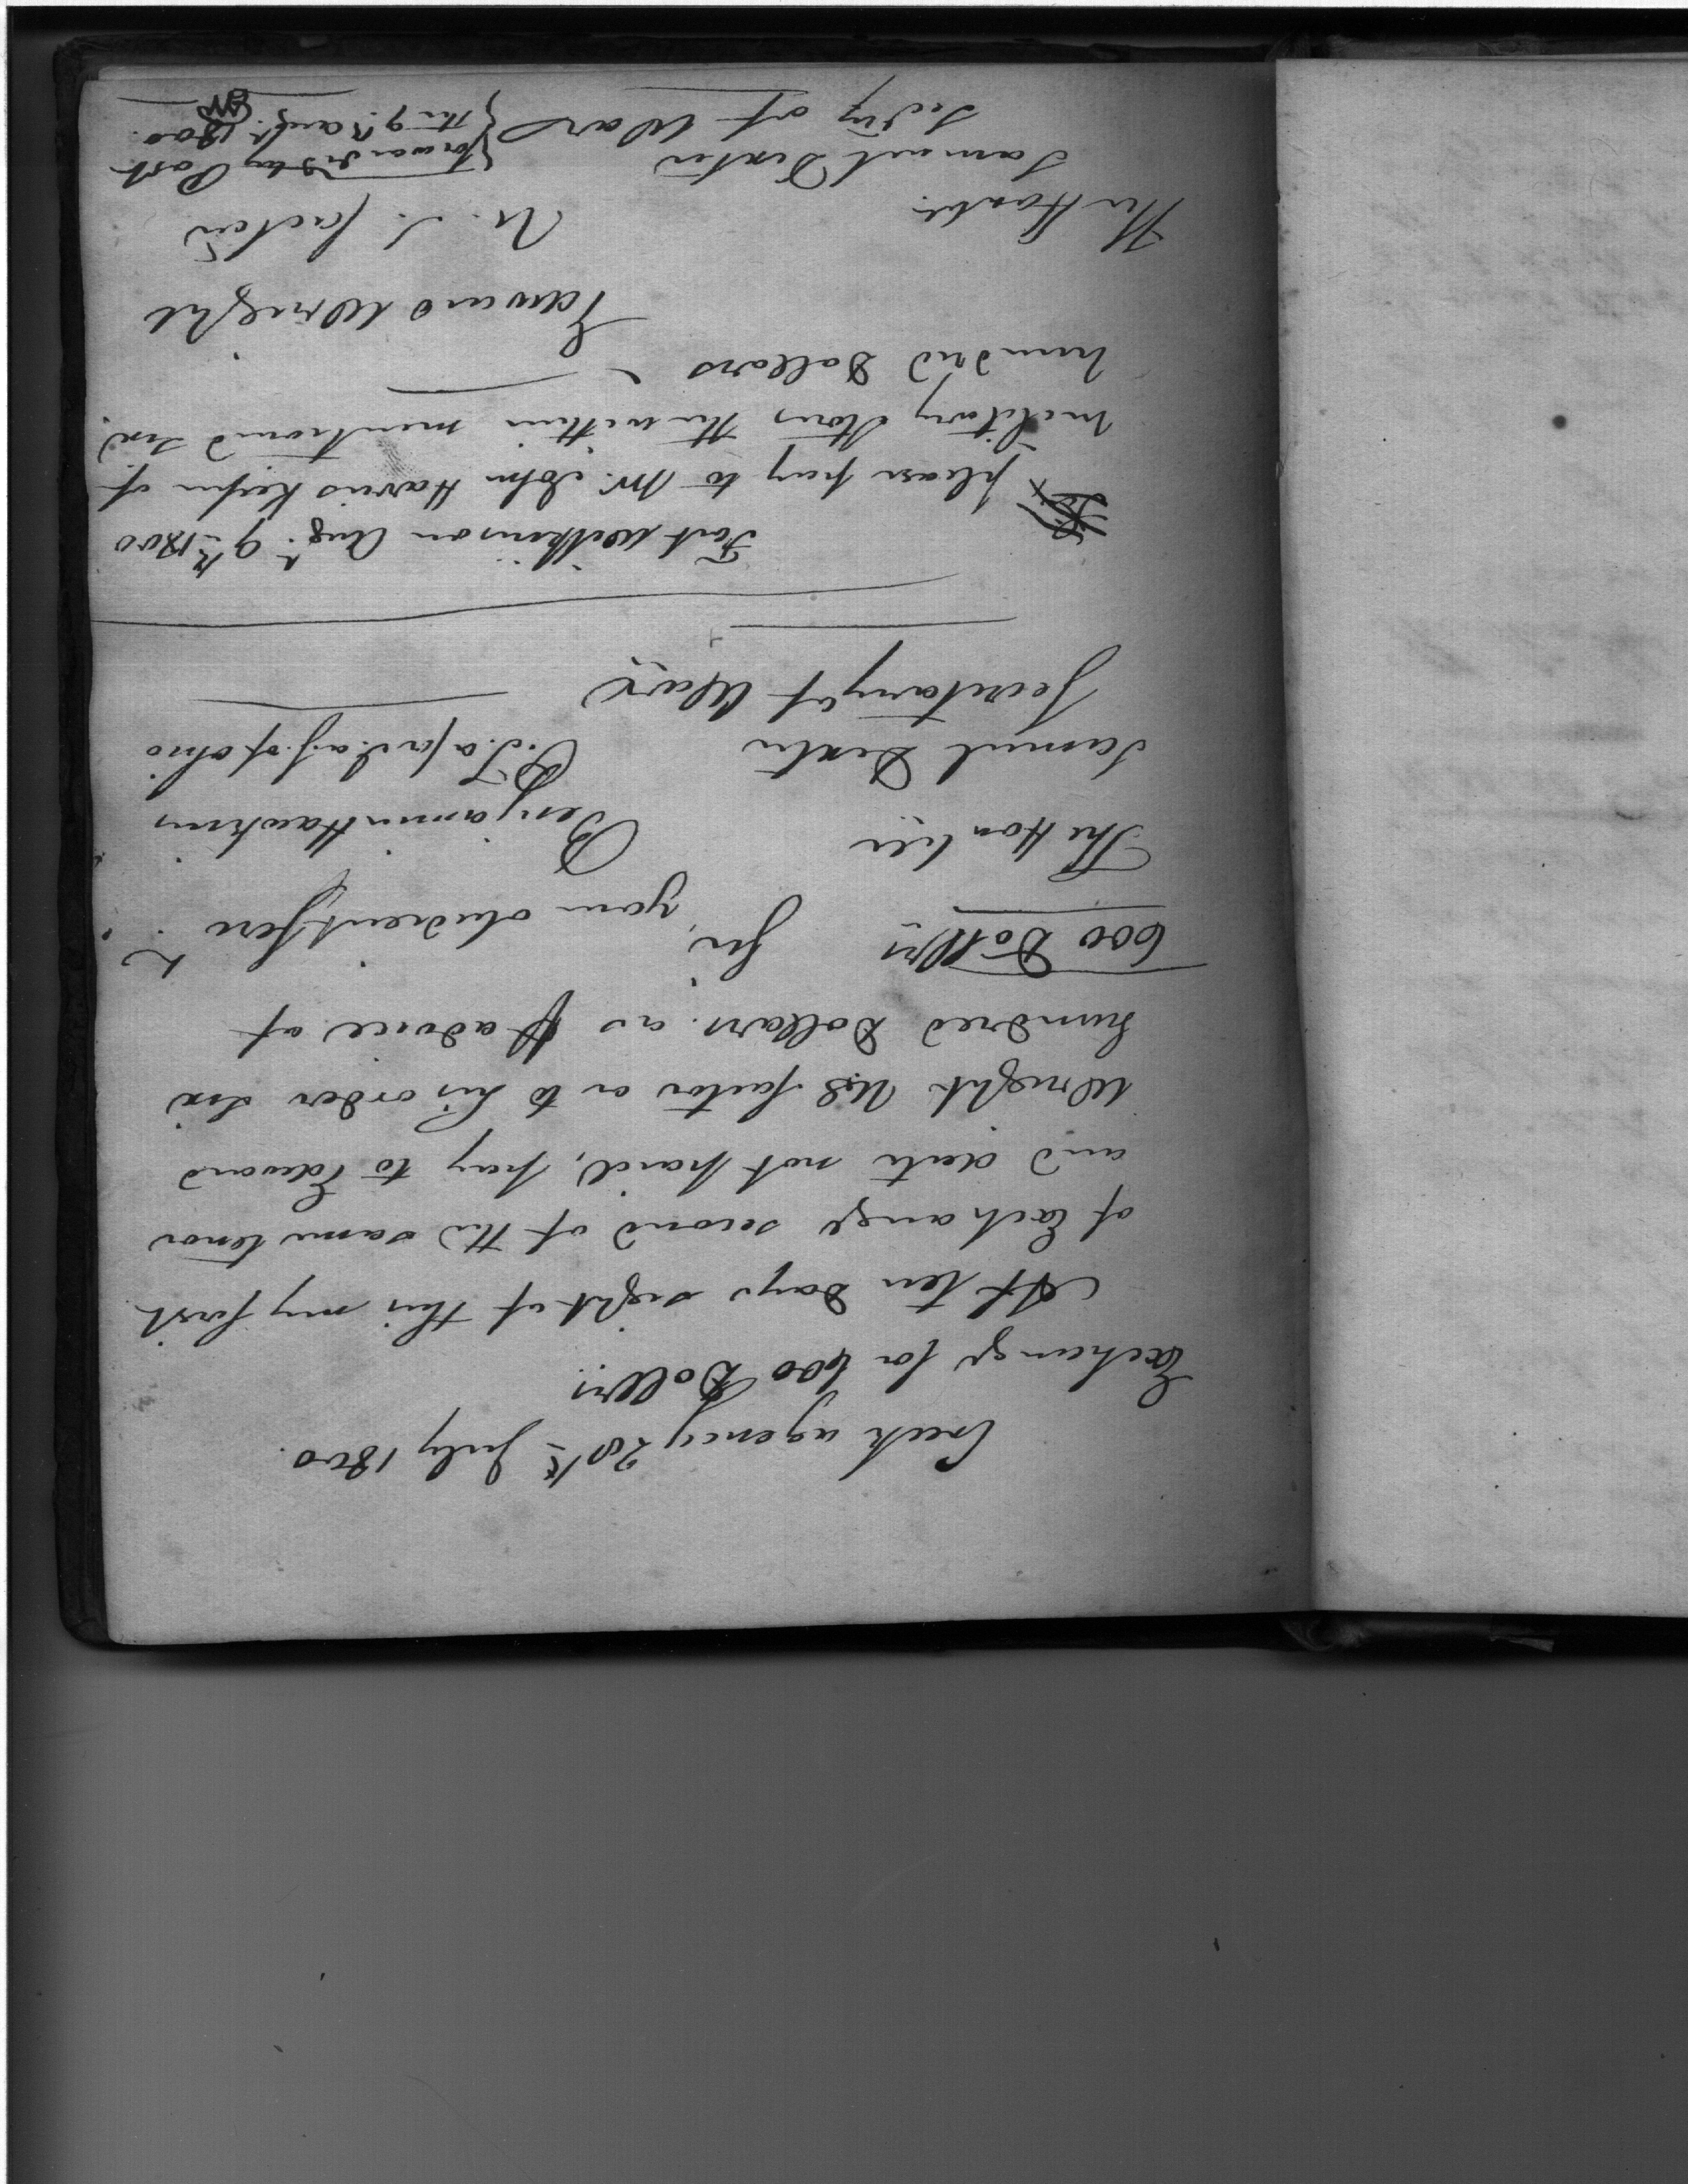 Creek agency 20th July 1800.
Exchange for 600 Dollrs.
At ten days sight of this my first
of Exchange second of the same tenor
and date not paid, pay to Edward
Wright U.S. factor or to his order six
hundred Dollars as p advice of
600 Dollrs Sir, your obedient Serv
The Honble Benjamin Hawkins
Samuel Dexter P. T. a for I. a. S. of ohio
Secretary of War
Fort Wilkinson Augt. 9th 1800
please pay to Mr. John Harris Keeper of
military Stores the within mentioned six
hundred Dollars
Edward Wright
The Honble. U. S. factor
Samuel Dexter forwarded by Post
Secry of War the 9th augt. 1800.